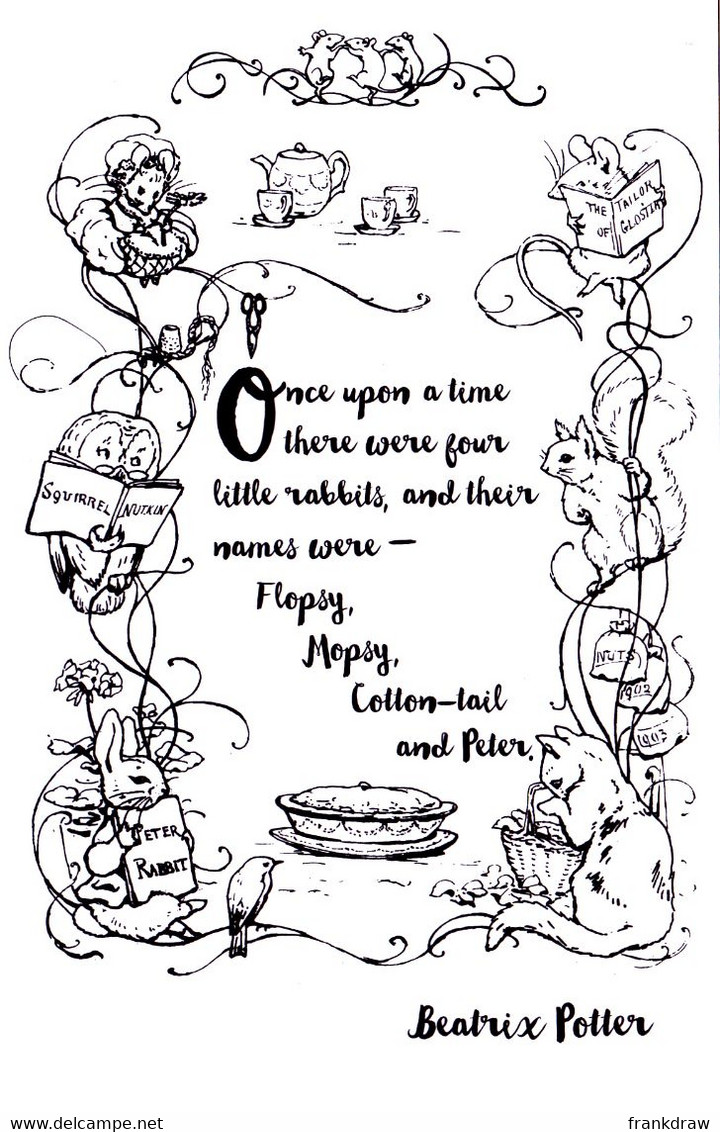 THE TAILOR
OF GLOSTER
Once upon a time
there were four
little rabbits, and their
names were –
Flopsy,
Mopsy,
Cotton-tail
and Peter.
SQUIRREL NUTKIN
NUTS
1902
1903
PETER
RABBIT
Beatrix Potter
www.delcampe.net
frankdraw